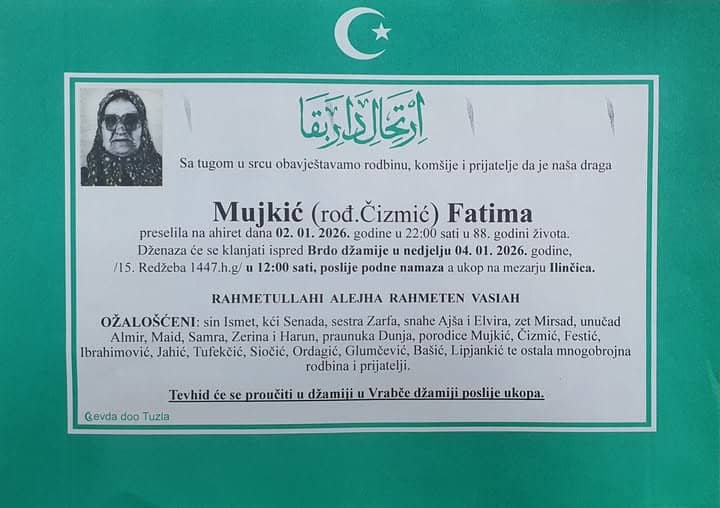 ارتحال دار بقا
Sa tugom u srcu obavještavamo rodbinu, komšije i prijatelje da je naša draga
Mujkić (rođ.Čizmić) Fatima
preselila na ahiret dana 02. 01. 2026. godine u 22:00 sati u 88. godini života.
Dženaza će se klanjati ispred Brdo džamije u nedjelju 04. 01. 2026. godine,
/15. Redžeba 1447.h.g/ u 12:00 sati, poslije podne namaza a ukop na mezarju Ilinčica.
RAHMETULLAHI ALEJHA RAHMETEN VASIAH
OŽALOŠĆENI: sin Ismet, kći Senada, sestra Zarfa, snahe Ajša i Elvira, zet Mirsad, unučad
Almir, Maid, Samra, Zerina i Harun, praunuka Dunja, porodice Mujkić, Čizmić, Festić,
Ibrahimović, Jahić, Tufekčić, Siočić, Ordagić, Glumčević, Bašić, Lipjankić te ostala mnogobrojna
rodbina i prijatelji.
Tevhid će se proučiti u džamiji u Vrabče džamiji poslije ukopa.
Ćevda doo Tuzla